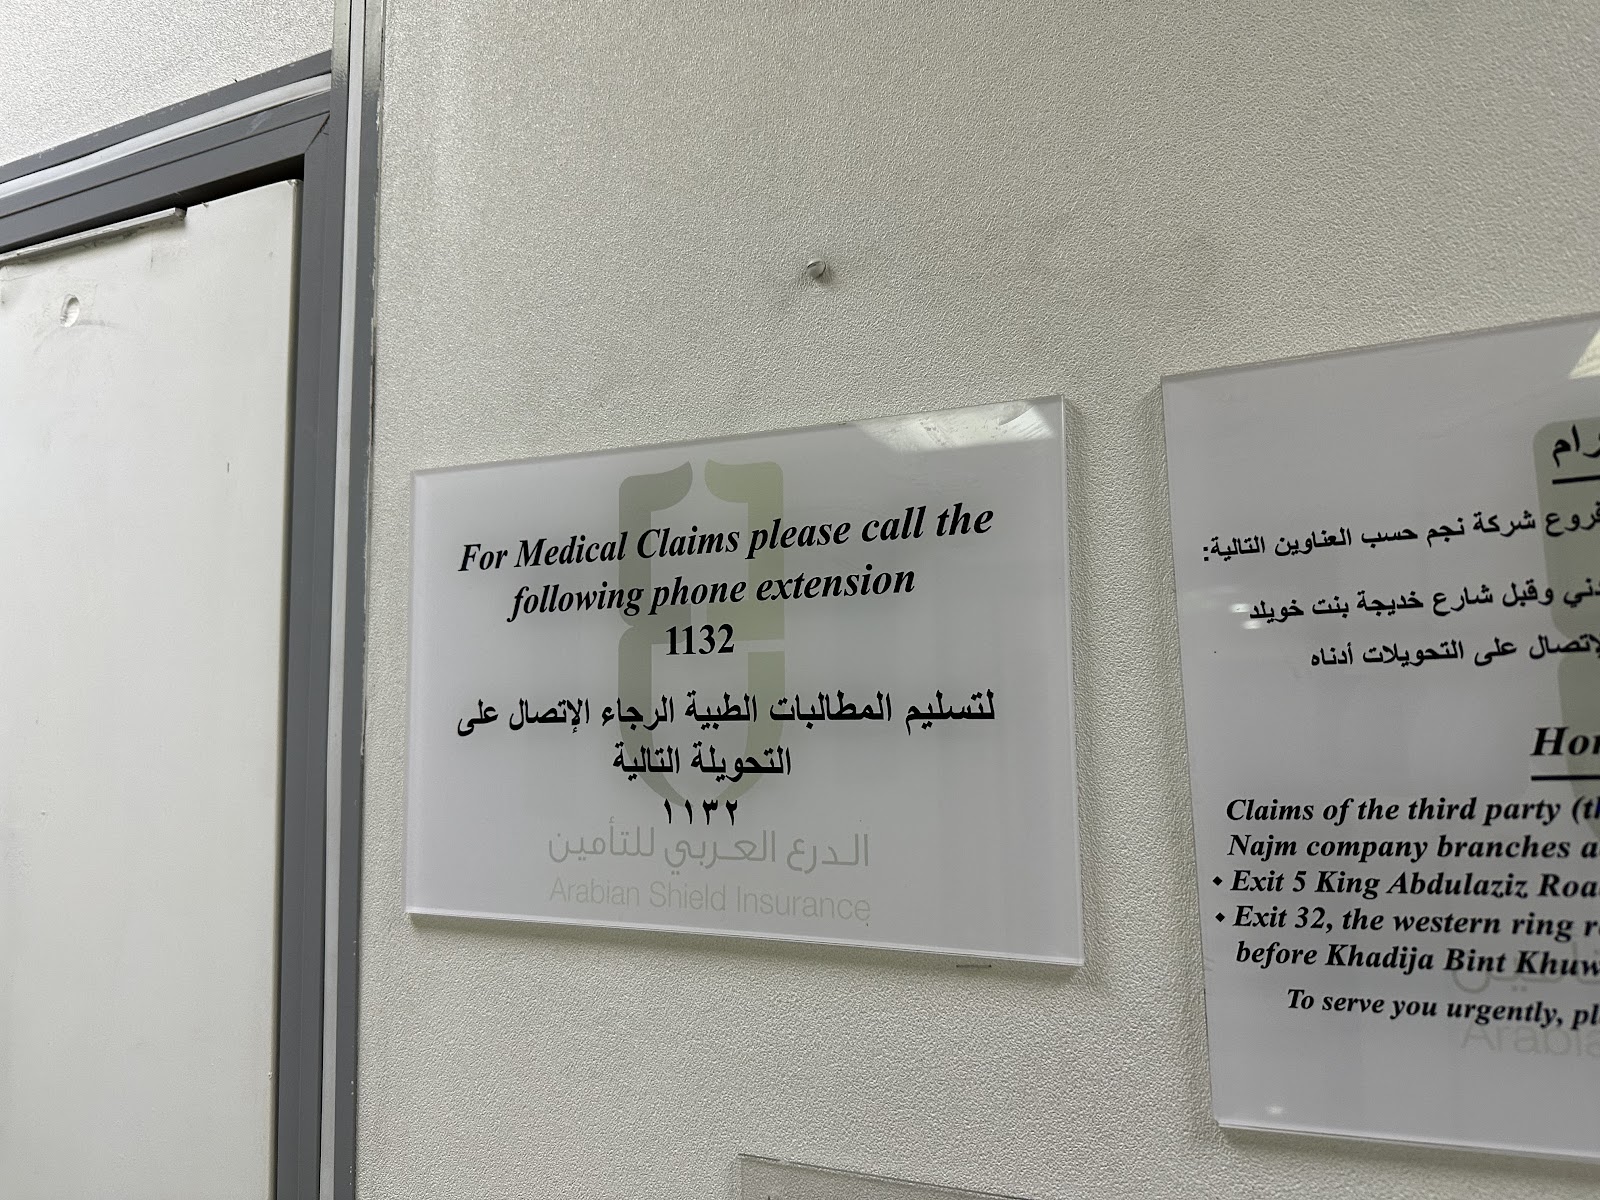 For Medical Claims please call the
following phone extension
1132
لتسليم المطالبات الطبية الرجاء الإتصال على
التحويلة التالية
١١٣٢
الدرع العربي للتأمين
Arabian Shield Insurance
شركة نجم حسب العناوين التالية:
وقبل شارع خديجة بنت خويلد
على التحويلات أدناه
Claims of the third party
Najm company branches
• Exit 5 King Abdulaziz
• Exit 32, the western ring
before Khadija Bint
To serve you urgently,